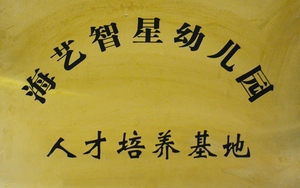 海艺智星幼儿园
人才培养基地